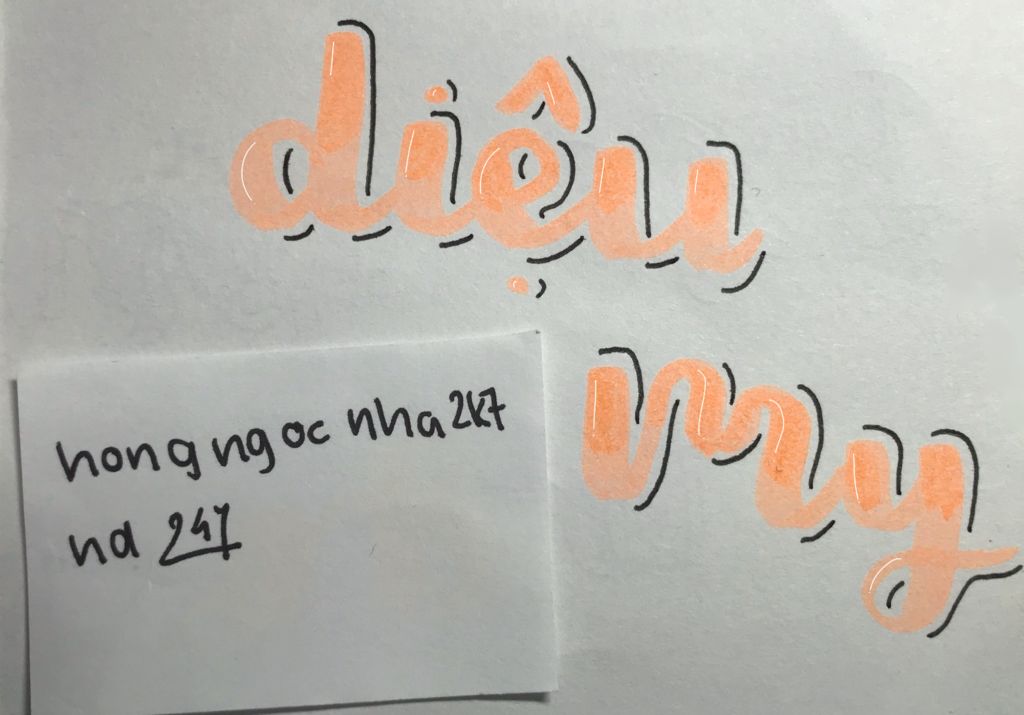 diệu
my
hongngoc nha2k7
nd 247